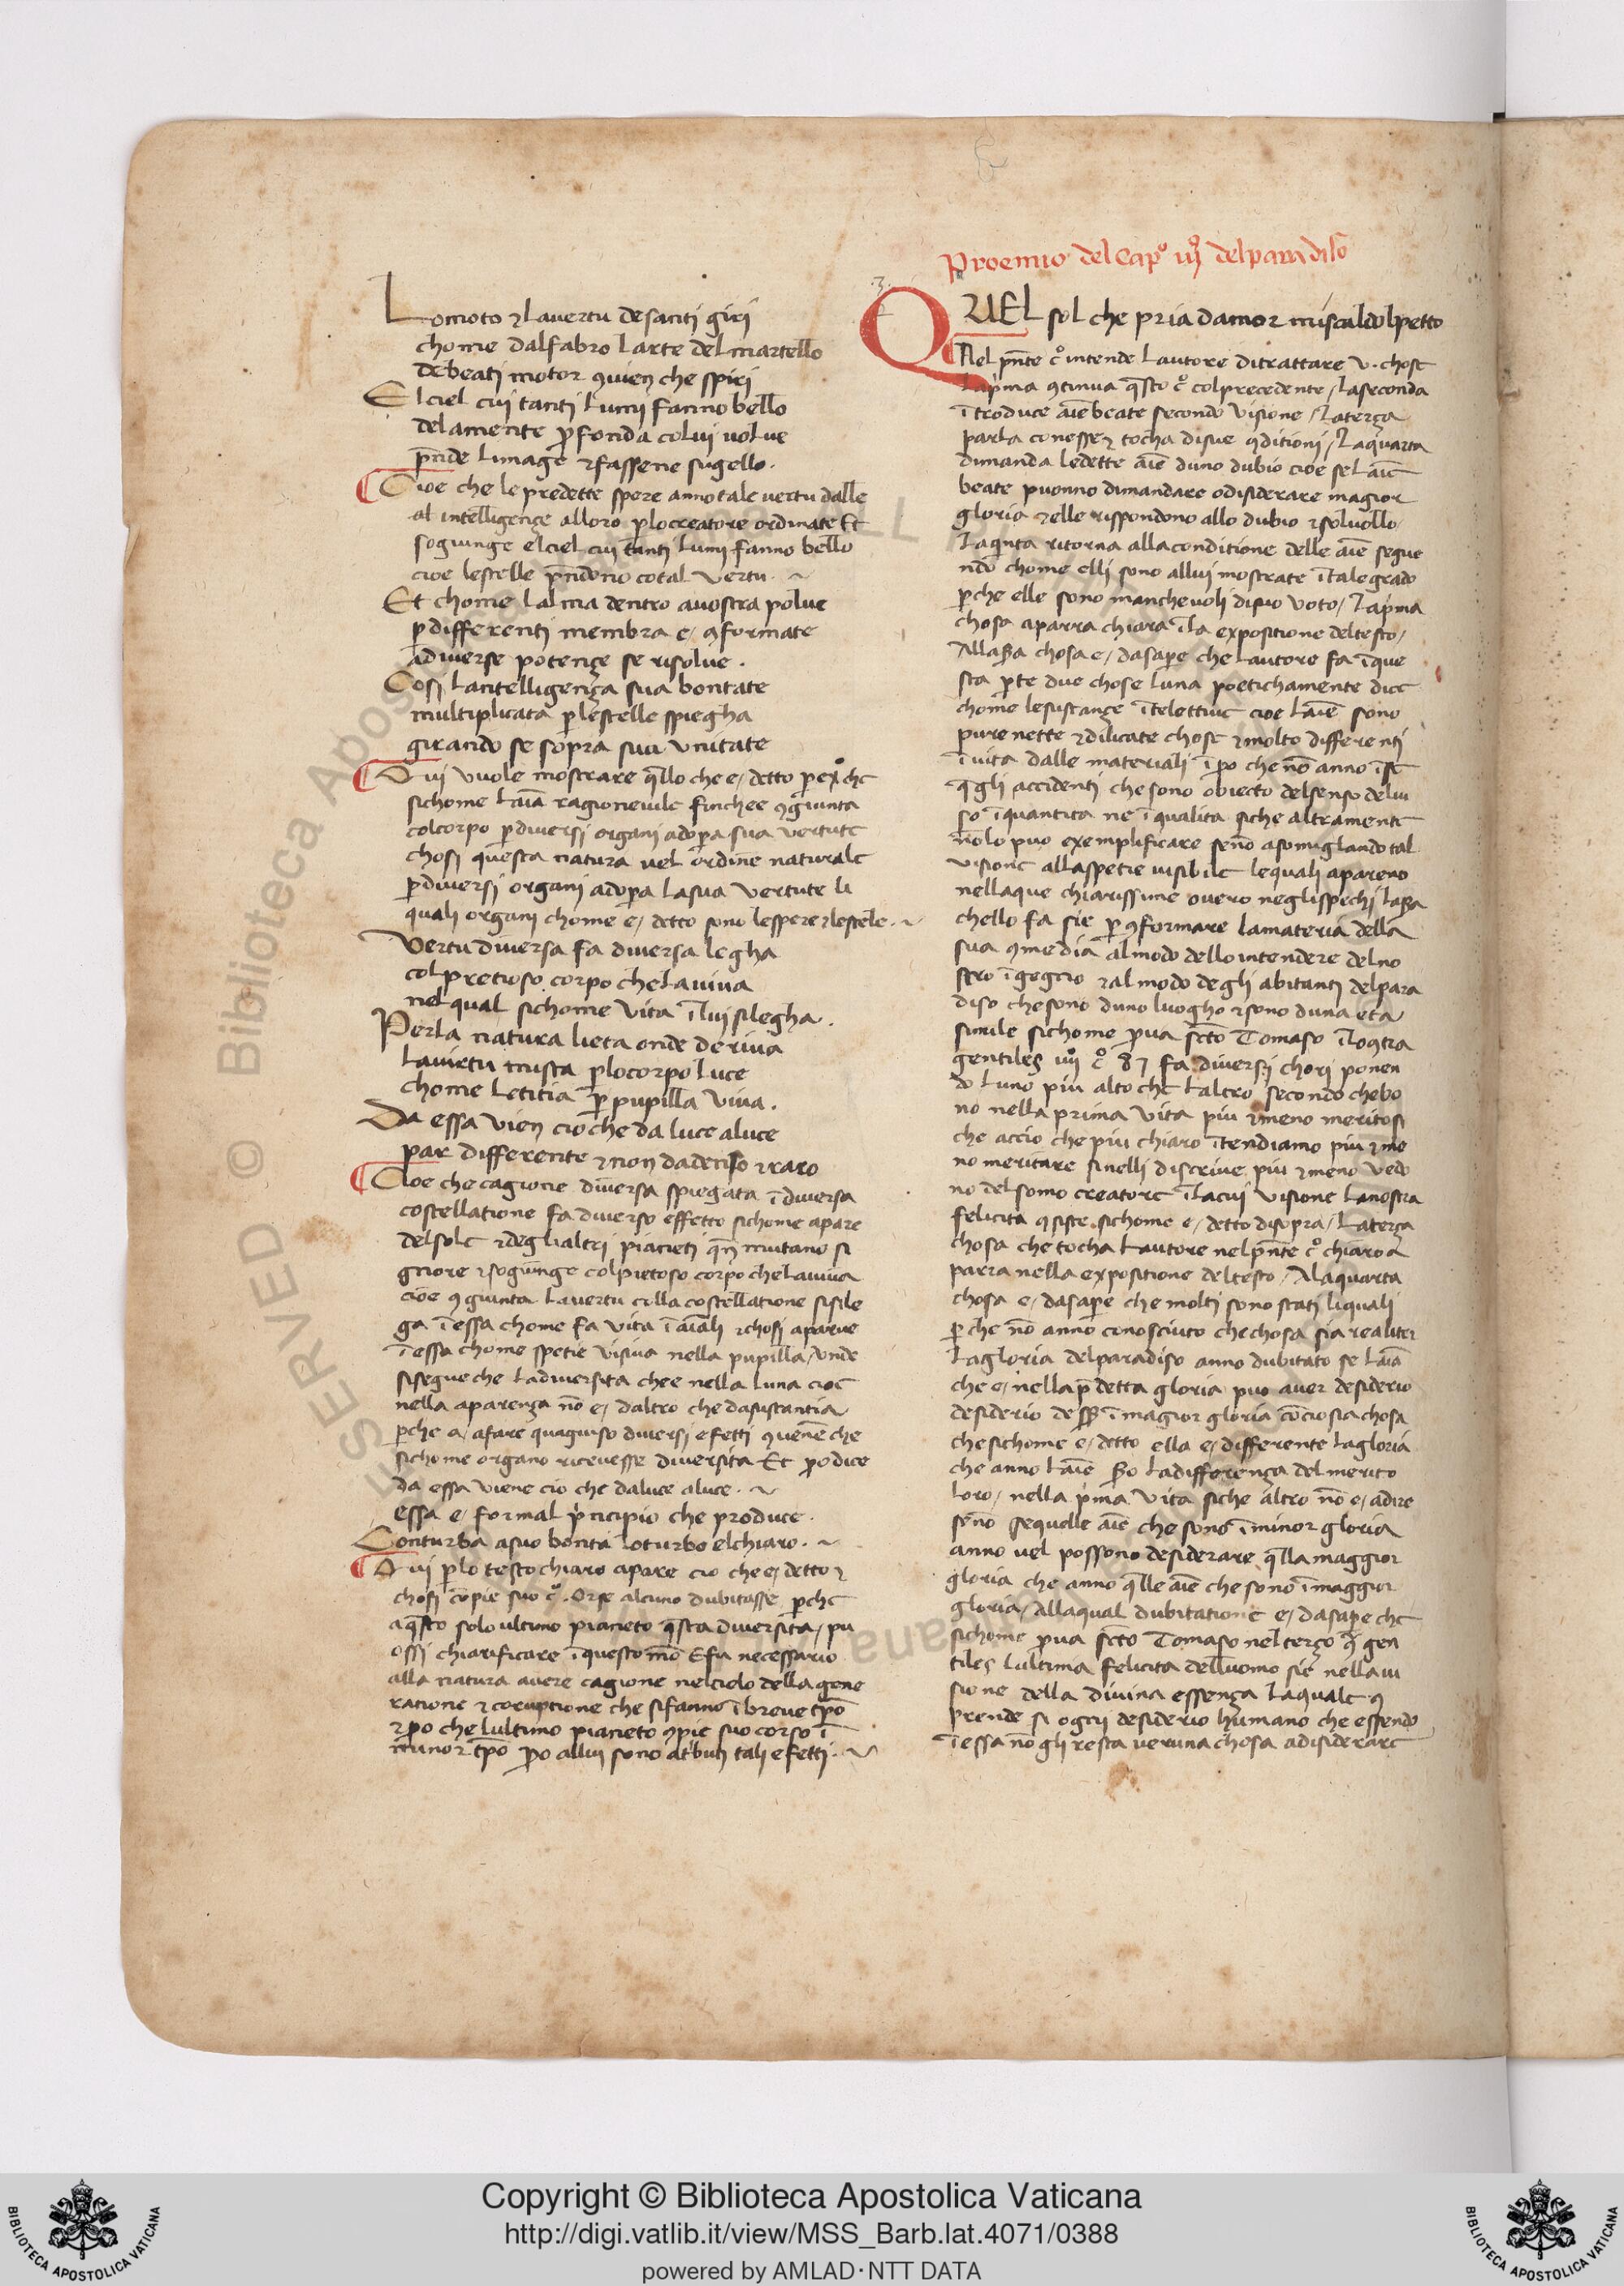 Lomoto ⁊ lavertu desanti giri
chome dalfabro larte del martello
debeati motor ꝯvien che spiri
El ciel cui tanti lumi fanno bello
delamente ꝓfonda colui volve
p̄nde limage ⁊ fassene sugello.
Cioe che le predette spere anno tale vertu dalle
al intelligençe alloro ꝑlo creatore ordinate Et
sogiunge elciel cui tanti lumi fanno bello
cioe lestelle p̄ndono cotal vertu.
Et chome lalma dentro avostra polve
ꝑ differenti membra e, ꝯformate
adiverse potençe se risolve.
Cosi lantelligença sua bontate
multiplicata ꝑ lestelle spiegha
girando se sopra sua vnitate
Qui vuole mostrare q̄llo che e, detto ꝑ exº che
sichome laīa ragionevile finchee ꝯgiunta
colcorpo ꝑ diversi organi adoꝑa sua vertute
chosi questa natura vel ordine naturale
ꝑ diversi organi adoꝑa lasua vertute li
quali organi chome e, detto sono lespere ⁊ lestele.
Vertu diversa fa diversa legha
col pretioso corpo chelaviva
nel qual sichome vita īlui silegha.
Perla natura lieta onde deriva
lavirtu mista ꝑlocorpo luce
chome letitia ꝑ pupilla viva.
Da essa vien cioche da luce aluce
par differente ⁊ non dadenso ⁊ raro
Cioe che cagione diversa spiegata ī diversa
costellatione fa diverso effetto sichome apare
delsole ⁊ deglialtri pianeti qñ mutano si
gnore ⁊ sogiunge colpietoso corpo chelaviva
cioe ꝯgiunta lavertu colla costellatione sisile
ga ī essa chome fa vita ī aīali ⁊ chosi aparve
ī essa chome spetie visiva nella pupilla, vnde
sisegue che ladiversita chee nella luna cioe
nella aparença nō e, daltro che dasustantia
ꝑche a, afare quagiuso diversi efetti ꝯvene che
sichome organo ricevesse diversita Et ꝑo dice
da essa viene cio che daluce aluce.
essa e, formal p̄ncipio che produce.
Conturba asuo bonta loturbo elchiaro.
Qui ꝑlo testo chiaro apare cio che e, detto ⁊
chosi cōpie suo cº. Orse alcuno dubitasse ꝑche
aq̄sto solo ultimo pianeto q̄sta diversita, pu
ossi chiarificare ī questo mō E fu necessario
alla natura avere cagione nelcielo della gene
ratione ⁊ coruptione che sifanno ī breve tp̄o
⁊ ꝑo che lultimo pianeto ꝯpie suo corso ī
minor tp̄o ꝑo allui sono atribuiti tali efetti.
Proemio del Capº iijº del paradiso
.3.
QUEL sol che pria damor miscaldolpetto
Nel p̄nte cº intende lautore ditrattare v. chose
lap̄ma ꝯtinua q̄sto cº colprecedente, laseconda
ītroduce aīe beate secondo visione, laterça
parla conesse ⁊ tocha disue ꝯditioni, laquarta
dimanda ledette aīe duno dubio cioe sel aīe
beate puonno dimandare odisiderare magior
gloria ⁊ elle rispondono allo dubio ⁊ solvollo,
laq̄nta ritorna allaconditione delle aīe segue
ndo chome elli sono allui mostrate ītale grado
ꝑche elle sono manchevoli disuo voto, lap̄ma
chosa aparra chiara īla expositione deltesto,
chosa e, dasaꝑe che lautore fa ī que
sta ꝑte due chose luna poetichamente dice
chome lesustançe ītelettive cioe laīe sono
pure nette ⁊ dilicate chose ⁊ molto differenti
ī vita dalle materiali ī ꝑo che nō anno īse
q̄gli accidenti che sono obiecto delsenso delvi
so ī quantita ne ī qualita siche altramente
nōlo puo exemplificare senō asomigliando tal
visione allaspetie visibile lequali apareno
nellaque chiarissime overo neglispechi
chello fa sie ꝑ ꝯformare lamateria della
sua ꝯmedia almodo dello intendere delno
stro īgegno ⁊ al modo degli abitanti delpara
diso chesono duno luogho ⁊ sono duna eta
simile sichome ꝓva sc̄to Tomaso īlo ꝯtra
gentiles iiijº cº 87 fa diversi chori ponen
do luno piu alto che laltro secondo chebo
no nella prima vita piu ⁊ meno meritosi
che accio che piu chiaro ītendiamo piu ⁊ me
no meritare sinelli discrive piu ⁊ meno vedo
no del somo creatore īlacui visione lanostra
felicita ꝯsiste sichome e, detto disopra, laterça
chosa che tocha lautore nelp̄nte cº chiaro a
parra nella expositione deltesto, Alaquarta
chosa e, dasaꝑe che molti sono stati liquali
ꝑ che nō anno conosciuto chechosa sia realiter
lagloria delparadiso anno dubitato se laīa
che e, nella p̄detta gloria puo aver desiderio
desiderio de ī magior gloria cōcio sia chosa
chesichome e, detto ella e, differente lagloria
che anno laīe ladifferença del merito
loro, nella p̄ma vita siche altro nō e, adire
senō sequelle aīe che sono ī minor gloria
anno vel possono desiderare q̄lla maggior
gloria che anno q̄lle aīe che sono ī maggior
gloria, Allaqual dubitatione e, dasaꝑe che
sichome ꝓva sc̄to Tomaso nel terço ꝯ̄ gen
tiles lultima felicita delluomo sie nella vi
sione della divina essença laquale ꝯ
prende si ogni desiderio humano che essendo
ī essa nō gli resta veruna chosa adisiderare
Copyright © Biblioteca Apostolica Vaticana
http://digi.vatlib.it/view/MSS_Barb.lat.4071/0388
powered by AMLAD·NTT DATA
BIBLIOTECA APOSTOLICA VATICANA
BIBLIOTECA APOSTOLICA VATICANA